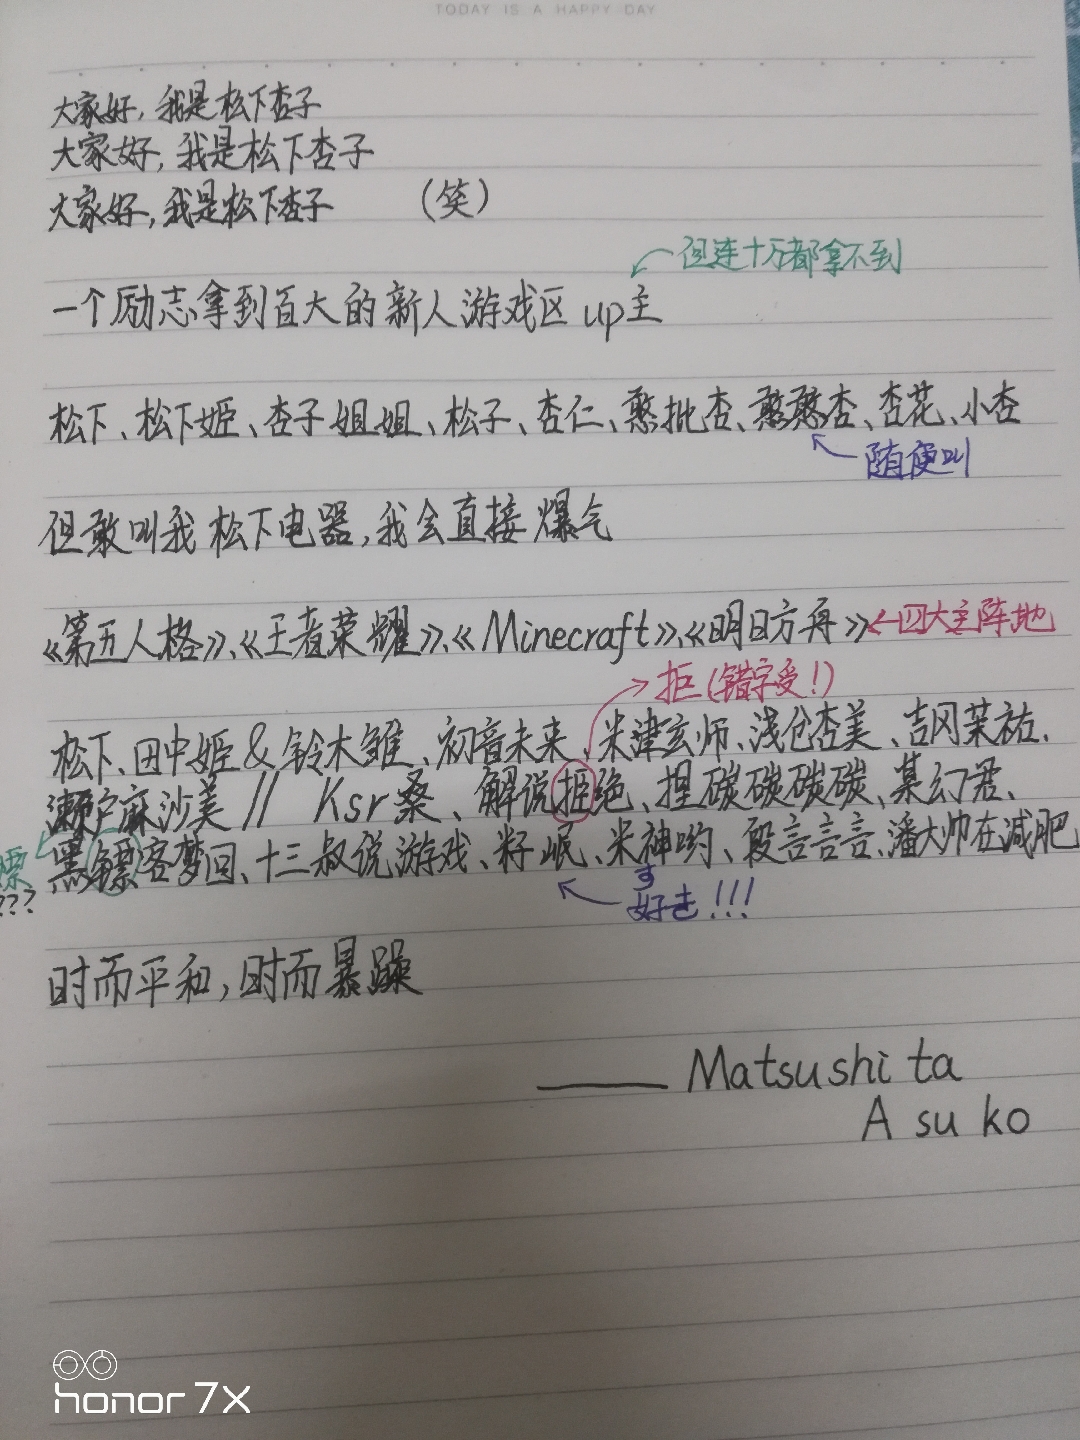 TODAY IS A HAPPY DAY
大家好,我是松下杏子
大家好,我是松下杏子
大家好,我是松下杏子 (笑)
但连十万都拿不到
一个励志拿到百大的新人游戏区up主
松下、松下姬、杏子姐姐、松子、杏仁、憨批杏、憨憨杏、杏花、小杏
随便叫
但敢叫我松下电器,我会直接爆气
《第五人格》、《王者荣耀》、《Minecraft》、《明日方舟》←四大主阵地
拒(错字受!)
松下、田中姬&铃木雏、初音未来、米津玄师、浅仓杏美、吉冈茉祐、
濑户麻沙美 // Ksr桑、解说拒绝、捏碳碳碳碳、某幻君、
黑镖客梦回、十三叔说游戏、籽岷、米神哟、殷言言言、潘大帅在减肥
镖
???
す
好走!!!
时而平和,时而暴躁
—— Matsushita
Asuko
honor 7X